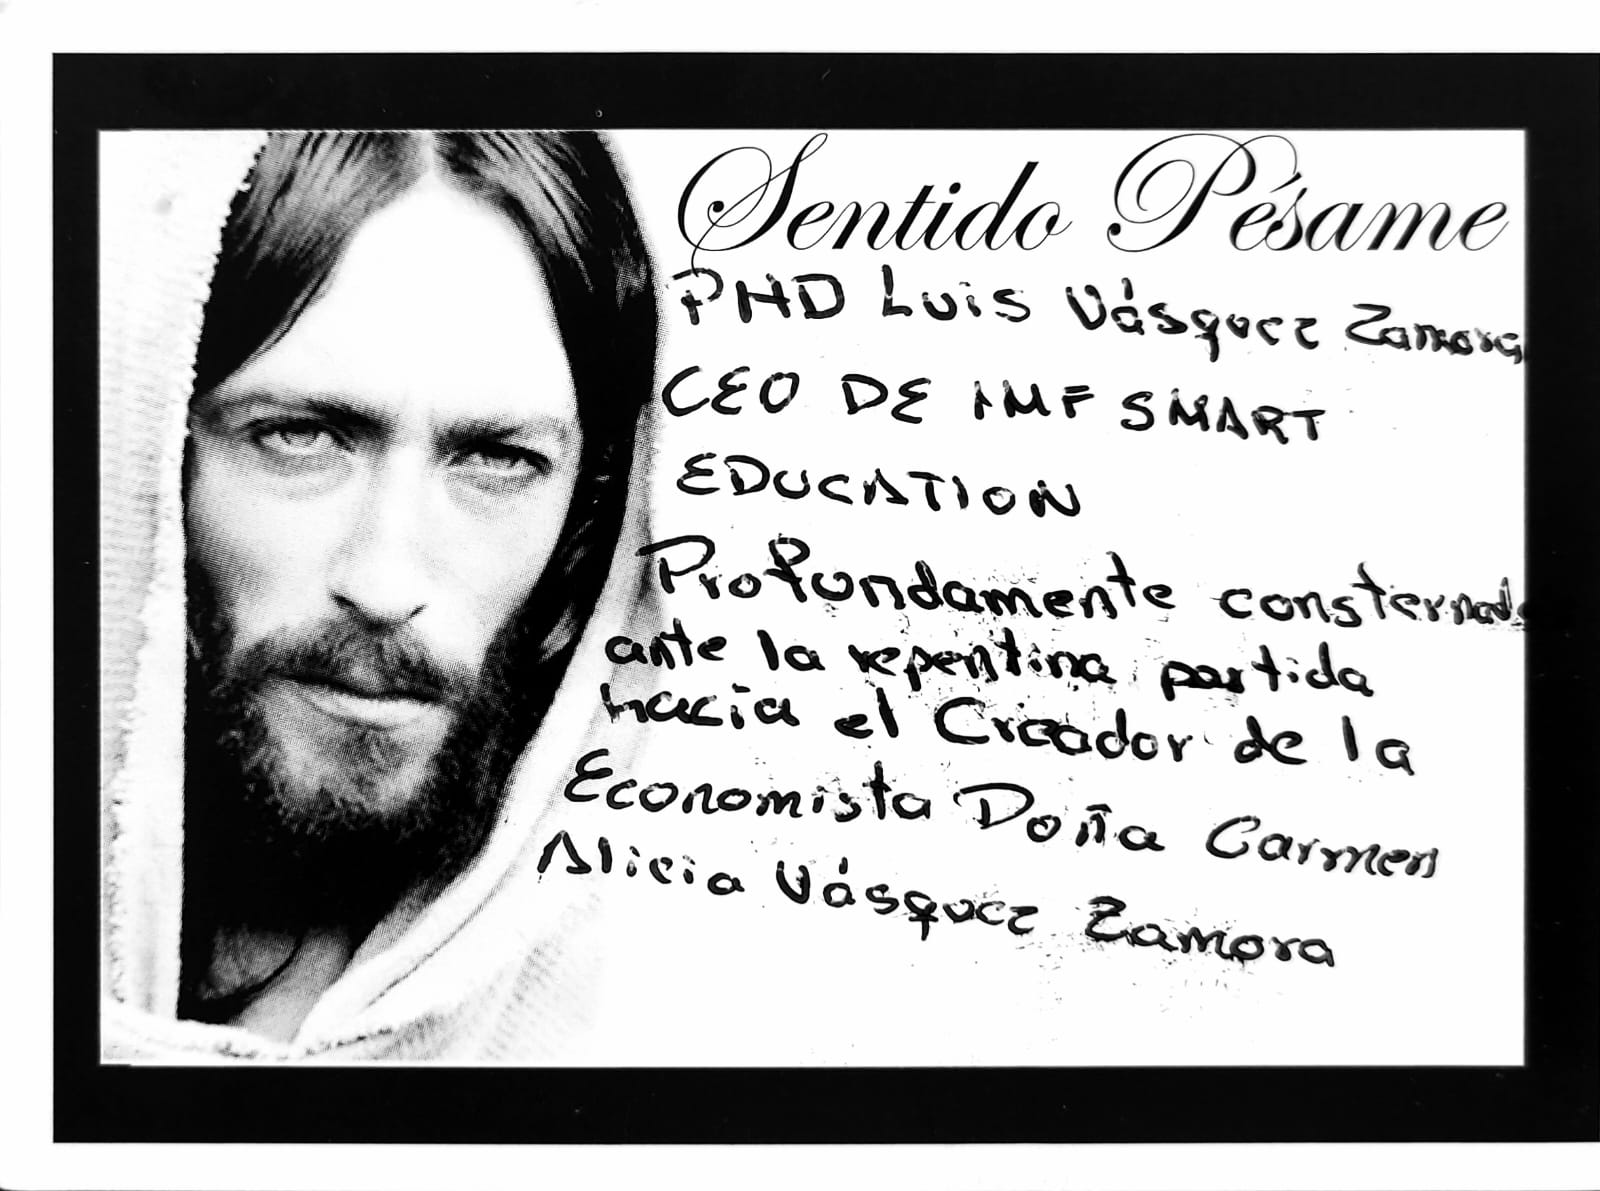 Sentido Pésame
PHD Luis Vásquez Zamora
CEO DE IMF SMART
EDUCATION
Profundamente consternado
ante la repentina partida
hacia el Creador de la
Economista Doña Carmen
Alicia Vásquez Zamora